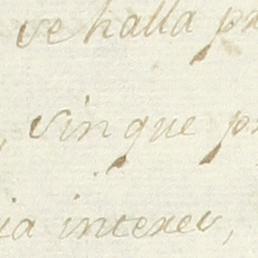 se halla pr
, sin que pr
ia interes,